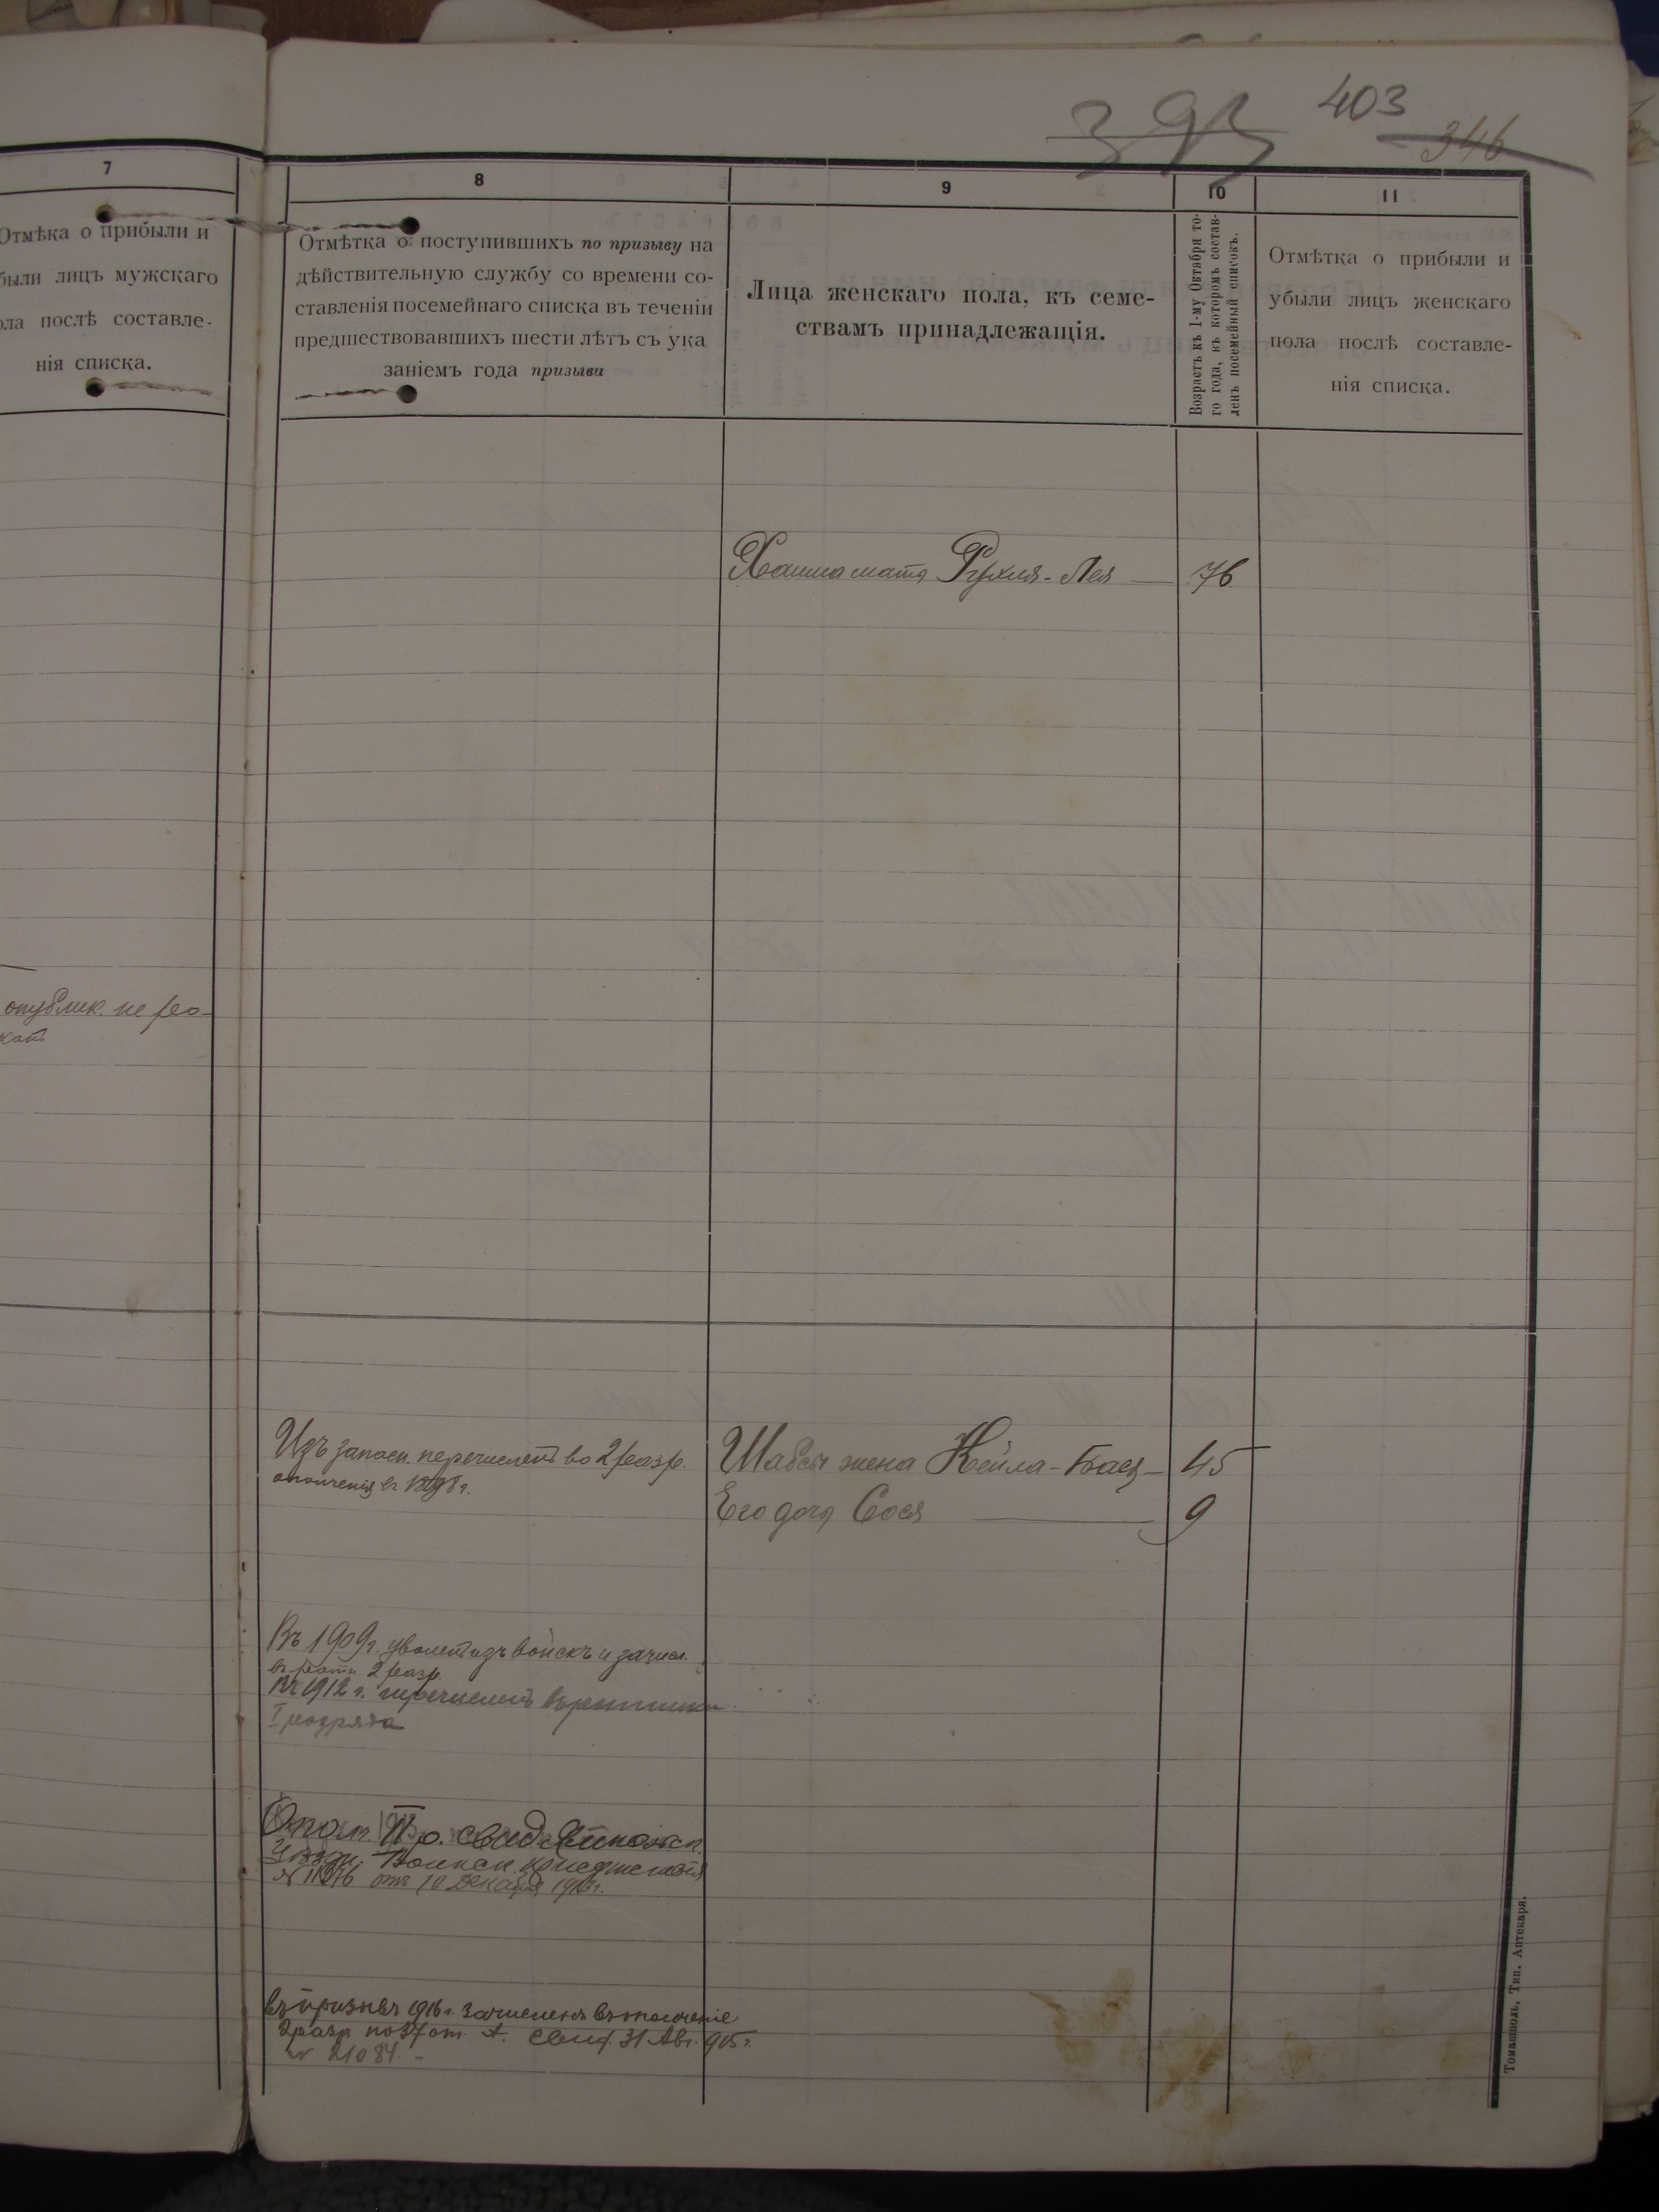 393 403 346
7
Отмѣка о прибыли и
были лицъ мужскаго
ола послѣ составле-
нія списка.
опублик. не
8
Отмѣтка о поступившихъ по призыву на
дѣйствительную службу со времени со-
ставленія посемейнаго списка въ теченіи
предшествовавшихъ шести лѣтъ съ ука
заніемъ года призыва
9
Лица женскаго пола, къ семе-
ствамъ принадлежащія.
10
Возрастъ къ 1-му Октября то-
го года, въ которомъ состав-
ленъ посемейный списокъ.
11
Отмѣтка о прибыли и
убыли лицъ женскаго
пола послѣ составле-
нія списка.
мать Рухля-Лея 76
Изъ запасн. перечисленъ во 2 разр.
ополченія въ 1898 г.
Шабсы жена Кейла-Бася 45
Его дочь Сося 9
Въ 1909 г. уволенъ изъ войскъ и зачисл.
въ ратн. 2 разр.
Въ 1912 г. перечисленъ въ ратники
I разряда
Опол. II р. свид.
Уѣздн. Воинск. присутствія
отъ 10 Декабря
въ призывъ 1916 г. зачисленъ въ ополченіе
2 разр по 37 ст. А. свид. 31 Авг. 915 г.
№ 21084
Томашполь, Тип. Аптекаря.